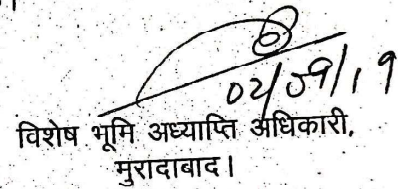 02/09/19
विशेष भूमि अध्याप्ति अधिकारी,
मुरादाबाद।